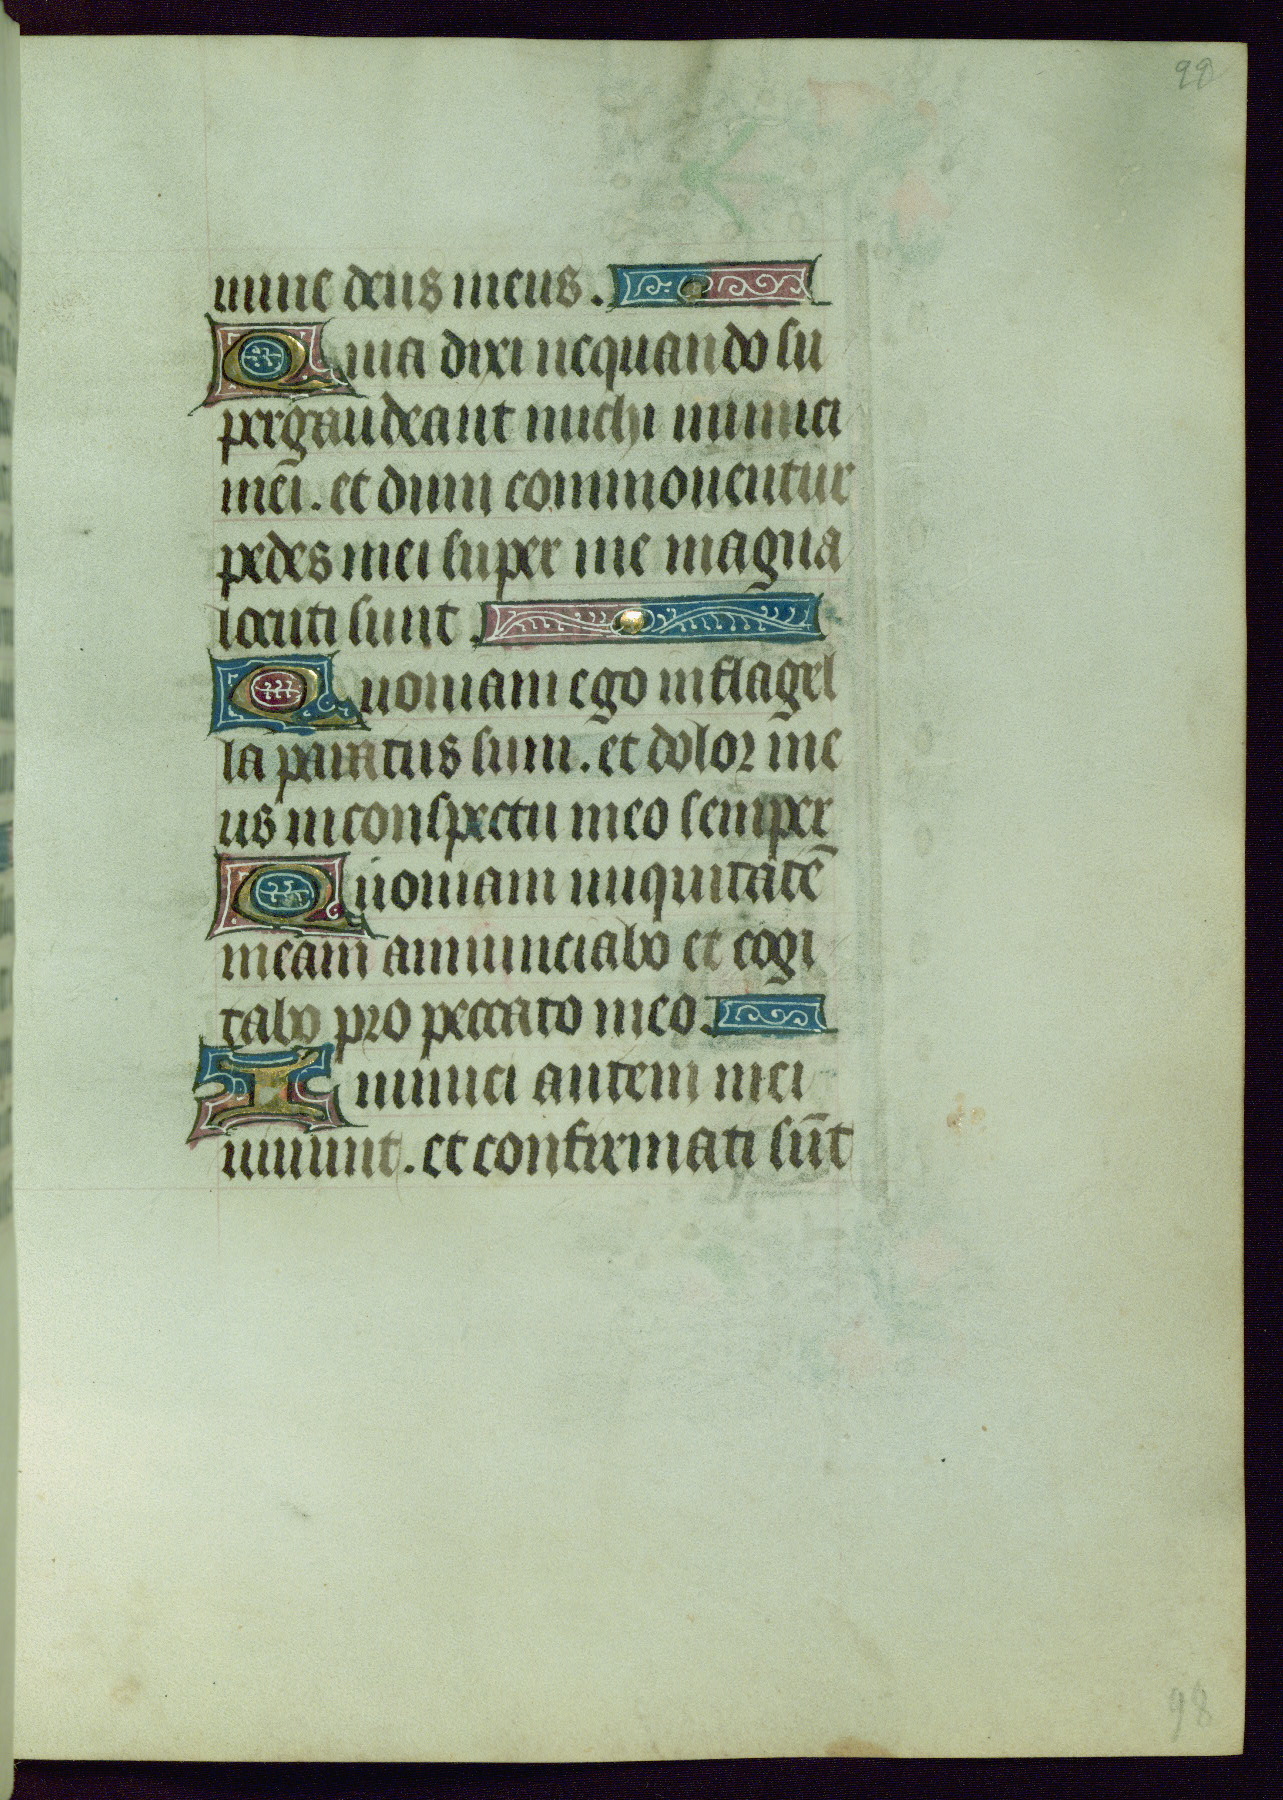 99
mine deus meus.
Quia dixi nequando su
pergaudeant michi inimici
mei. et dum commouentur
pedes mei super me magna
locuti sunt.
Quoniam ego in flagel
la paratus sum. et dolor me
us in conspectu meo semper
Quoniam iniquitatē
meam annunciabo et cogi
tabo pro peccato meo.
Inimici autem mei
uiuunt. et confirmati sūt
98